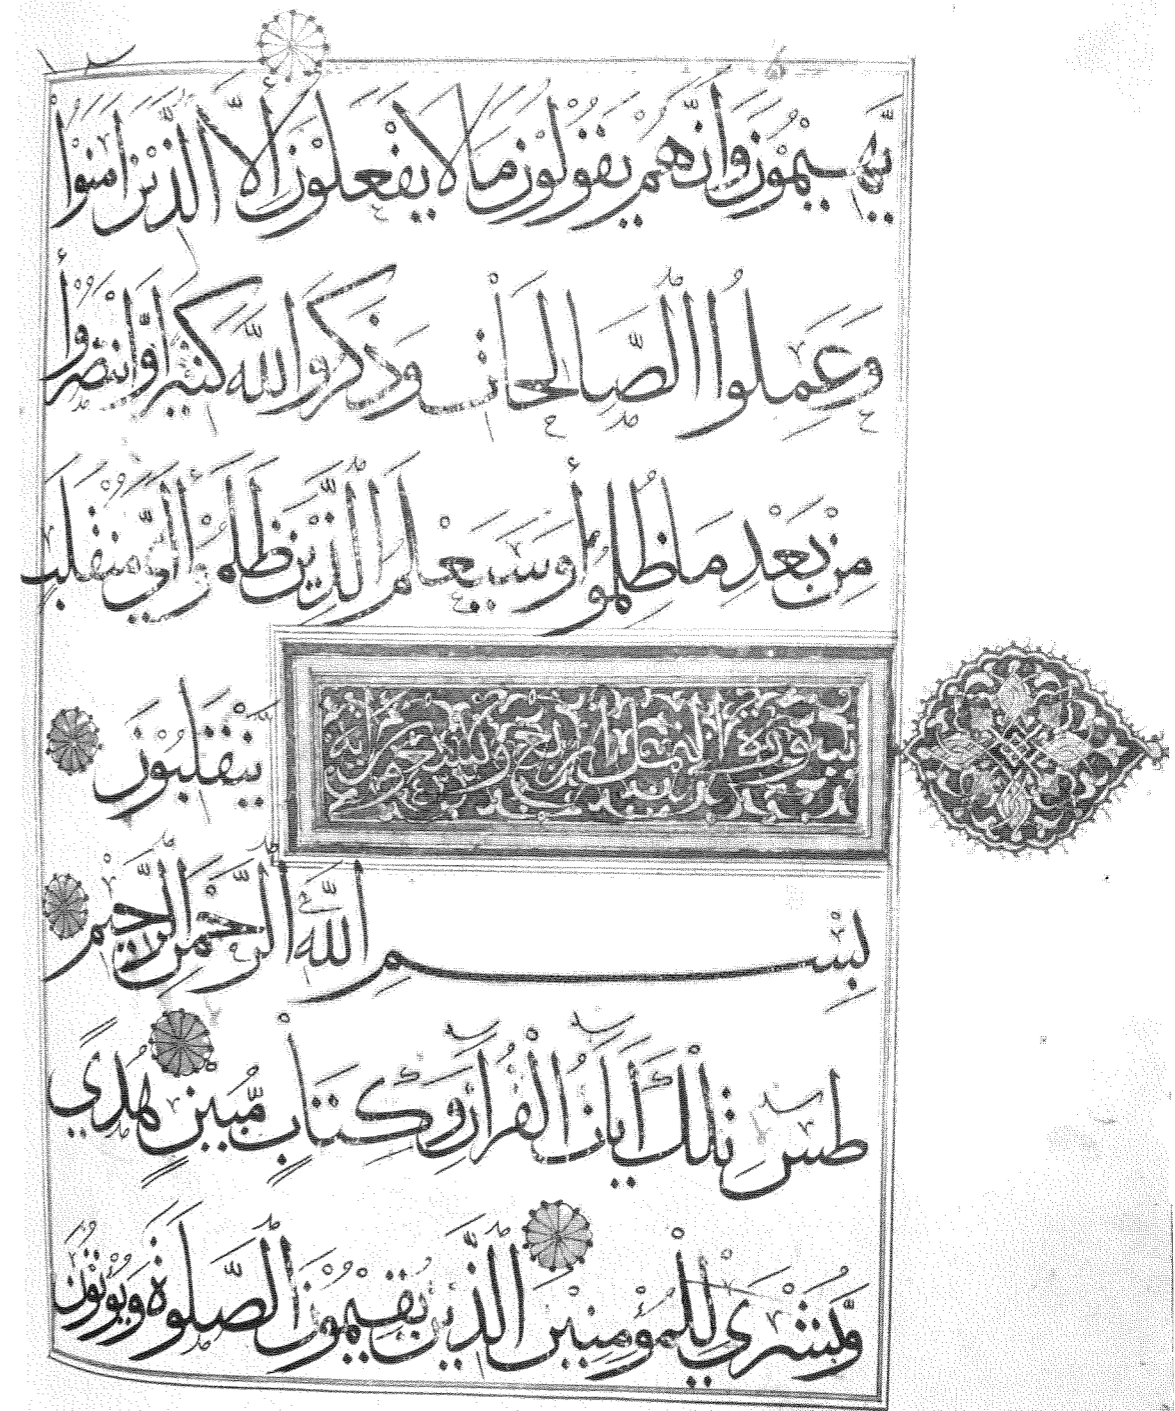 يَهِيمُونَ وَأَنَّهُمْ يَقُولُونَ مَا لَا يَفْعَلُونَ إِلَّا الَّذِينَ آمَنُوا
وَعَمِلُوا الصَّالِحَاتِ وَذَكَرُوا اللَّهَ كَثِيرًا وَانْتَصَرُوا
مِنْ بَعْدِ مَا ظُلِمُوا وَسَيَعْلَمُ الَّذِينَ ظَلَمُوا أَيَّ مُنْقَلَبٍ
يَنْقَلِبُونَ
سورة النمل اربع وتسعون اية
بِسْمِ اللَّهِ الرَّحْمَنِ الرَّحِيمِ
طس تِلْكَ آيَاتُ الْقُرْآنِ وَكِتَابٍ مُبِينٍ هُدًى
وَبُشْرَى لِلْمُؤْمِنِينَ الَّذِينَ يُقِيمُونَ الصَّلَوةَ وَيُؤْتُونَ